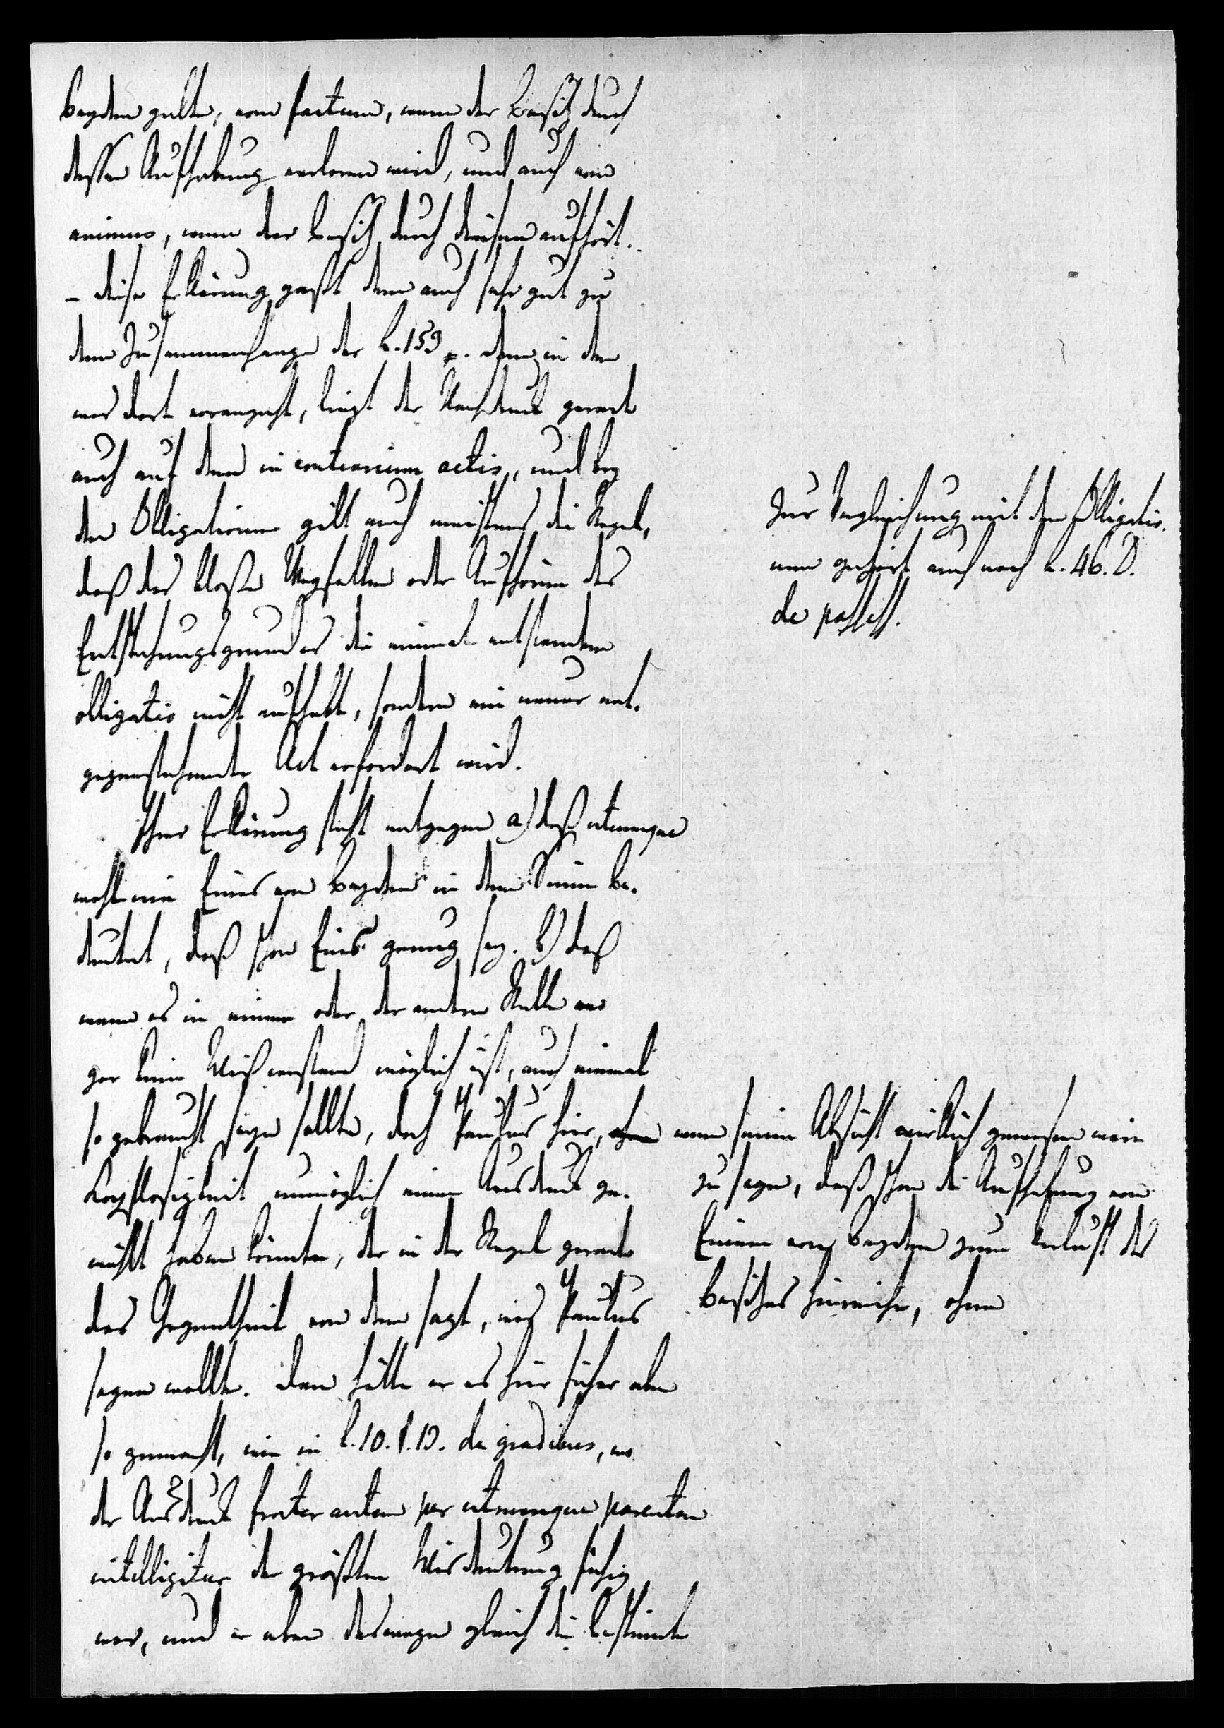 beyden gelte, vom factum, wenn der Besitz durch
dessen Aufhebung verloren wird, und auch vom
animus, wenn der Besitz durch diesen aufhört.
– diese Erklärung paßt denn auch sehr gut zu
dem Zusammenhange der L. 153. denn in dem
was dort vorangeht, liegt der Nachdruck gerade
auch auf dem in contrarium actis, und bey
den Obligationen gilt auch meistens die Regel,
daß das bloße Wegfallen oder Aufhören des
Entstehungsgrundes die einmal entstandene
obligatio nicht aufhebt, sondern ein neuer ent-
gegenstehender Act erfordert wird.
Zur Vergleichung mit den Obligatio-
nen gehört auch noch L. 46. D.
de possess.
Jener Erklärung steht entgegen a) daß utrumque
wohl nie Eines von beyden in dem Sinne be-
deutet, daß schon Eines genug sey. b) daß
wenn es in einer oder der andern Stelle wo
gar kein Mißverstand möglich ist, auch einmal
so gebraucht seyn sollte, doch Paulus hier,
wenn seine Absicht wirklich gewesen wäre
zu sagen, daß schon die Aufhebung von
Einem von beyden zum Verlust des
Besitzes hinreiche, ohne
Kopflosigkeit unmöglich einen Ausdruck ge-
wählt haben könnte, der in der Regel gerade
das Gegentheil von dem sagt, was Paulus
sagen wollte. Dann hätte er es hier sicher eben
so gemacht, wie in L. 10. D. de gradibus, wo
der Ausdruck frater autem per utrumque parentem
intelligitur der größten Misdeutung fähig
war, und er eben deswegen gleich die bestimmte